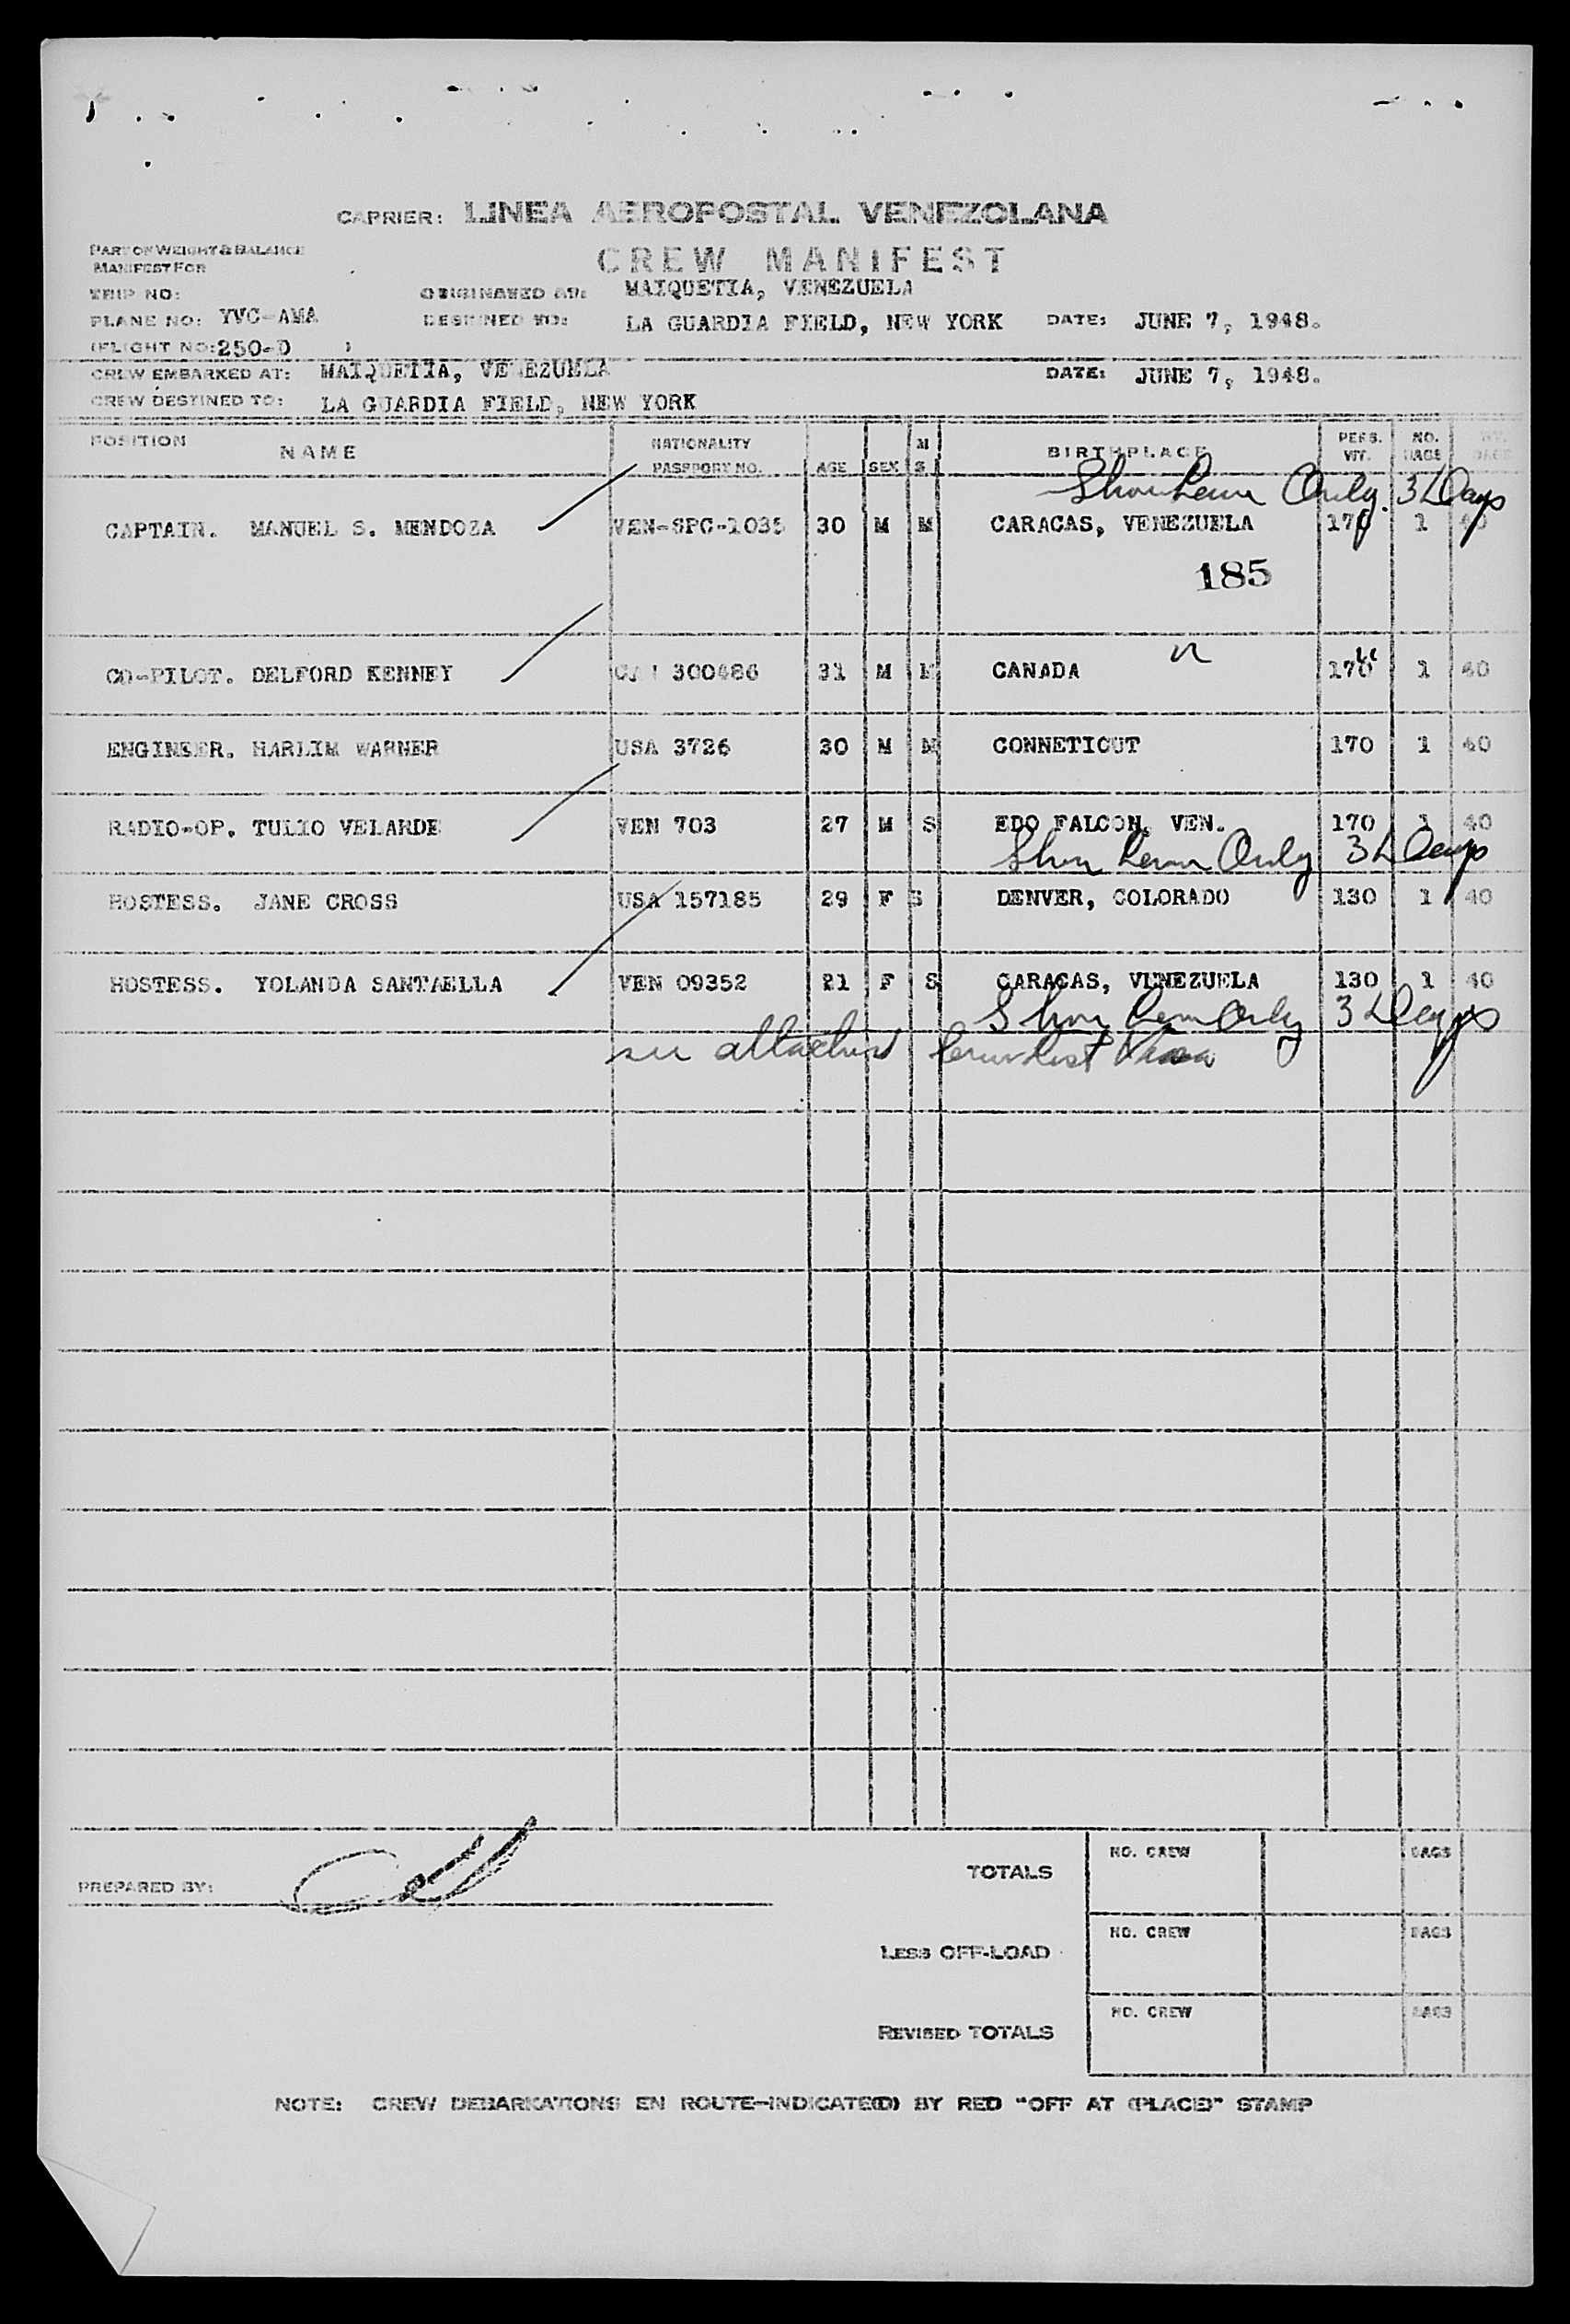 CARRIER: LINEA AEROPOSTAL VENEZOLANA
PART OR WEIGHT & BALANCE
MANIFEST FOR
CREW MANIFEST
TRIP NO:
ORIGINATED AT: MAIQUETIA, VENEZUELA
PLANE NO: YVC-AMA
DESTINED TO: LA GUARDIA FIELD, NEW YORK DATE: JUNE 7, 1948.
(FLIGHT NO: 250-D )
CREW EMBARKED AT: MAIQUETIA, VENEZUELA DATE: JUNE 7, 1948.
CREW DESTINED TO: LA GUARDIA FIELD, NEW YORK
POSITION NAME NATIONALITY PASSPORT NO. AGE SEX M S BIRTHPLACE PERS. WT. NO. BAGS
Only 3 Days
CAPTAIN. MANUEL S. MENDOZA VEN-SPC-1035 30 M M CARACAS, VENEZUELA 170 1 40
185
CO-PILOT. DELFORD KENNEY CAN 300486 31 M M CANADA 170 1 40
ENGINEER. HARLIM WARNER USA 3726 30 M M CONNETICUT 170 1 40
RADIO-OP. TULIO VELARDE VEN 703 27 M S EDO FALCON, VEN. 170 1 40
Only 3 Days
HOSTESS. JANE CROSS USA 157185 29 F S DENVER, COLORADO 130 1 40
HOSTESS. YOLANDA SANTAELLA VEN 09352 21 F S CARACAS, VENEZUELA 130 1 40
Only 3 Days
see attached Visa
PREPARED BY:
TOTALS NO. CREW BAGS
LESS OFF-LOAD NO. CREW BAGS
REVISED TOTALS NO. CREW BAGS
NOTE: CREW DEBARKATIONS EN ROUTE-INDICATE(D) BY RED "OFF AT (PLACE)" STAMP